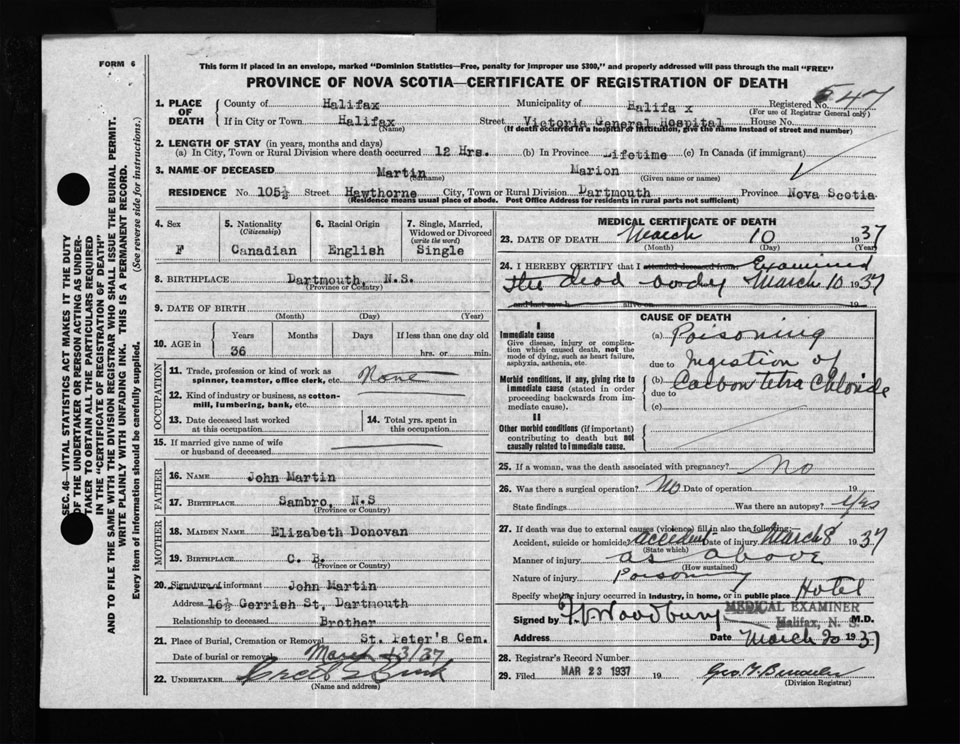 FORM 6
This form if placed in an envelope, marked "Dominion Statistics—Free, penalty for improper use $300," and properly addressed will pass through the mail "FREE"
PROVINCE OF NOVA SCOTIA—CERTIFICATE OF REGISTRATION OF DEATH
SEC. 46—VITAL STATISTICS ACT MAKES IT THE DUTY
OF THE UNDERTAKER OR PERSON ACTING AS UNDER-
TAKER TO OBTAIN ALL THE PARTICULARS REQUIRED
IN THE "CERTIFICATE OF REGISTRATION OF DEATH"
AND TO FILE THE SAME WITH THE DIVISION REGISTRAR WHO SHALL ISSUE THE BURIAL PERMIT.
WRITE PLAINLY WITH UNFADING INK. THIS IS A PERMANENT RECORD.
Every item of information should be carefully supplied. (See reverse side for instructions.)
1. PLACE OF DEATH
County of Halifax Municipality of Halifa x Registered No. 647
(For use of Registrar General only)
If in City or Town Halifax Street Victoria General Hospital House No.
(Name) (If death occurred in a hospital or institution, give the name instead of street and number)
2. LENGTH OF STAY (in years, months and days)
(a) In City, Town or Rural Division where death occurred 12 Hrs. (b) In Province Lifetime (c) In Canada (if immigrant)
3. NAME OF DECEASED Martin Marion
(Surname) (Given name or names)
RESIDENCE No. 105½ Street Hawthorne City, Town or Rural Division Dartmouth Province Nova Scotia
(Residence means usual place of abode. Post Office Address for residents in rural parts not sufficient)
4. Sex F
5. Nationality (Citizenship) Canadian
6. Racial Origin English
7. Single, Married, Widowed or Divorced (write the word) Single
8. BIRTHPLACE Dartmouth, N.S.
(Province or Country)
9. DATE OF BIRTH
(Month) (Day) (Year)
10. AGE in Years Months Days If less than one day old
36 hrs. or min.
OCCUPATION
11. Trade, profession or kind of work as
spinner, teamster, office clerk, etc. None
12. Kind of industry or business, as cotton-
mill, lumbering, bank, etc.
13. Date deceased last worked
at this occupation
14. Total yrs. spent in
this occupation
15. If married give name of wife
or husband of deceased
FATHER
16. NAME John Martin
17. BIRTHPLACE Sambro, N.S
(Province or Country)
MOTHER
18. MAIDEN NAME Elizabeth Donovan
19. BIRTHPLACE C. B.
(Province or Country)
20. Signature of informant John Martin
Address 16½ Gerrish St, Dartmouth
Relationship to deceased Brother
21. Place of Burial, Cremation or Removal St. Peter's Cem.
Date of burial or removal March 13/37
22. UNDERTAKER
(Name and address)
MEDICAL CERTIFICATE OF DEATH
23. DATE OF DEATH March 10 1937
(Month) (Day) (Year)
24. I HEREBY CERTIFY that I attended deceased from Examined
the dead body March 10 1937
and last saw h alive on 19
CAUSE OF DEATH
I
Immediate cause
Give disease, injury or complica-
tion which caused death, not the
mode of dying, such as heart failure,
asphyxia, asthenia, etc.
(a) Poisoning
due to Ingestion of
Morbid conditions, if any, giving rise to
immediate cause (stated in order
proceeding backwards from im-
mediate cause).
(b) Carbon tetra Chloride
due to
(c)
II
Other morbid conditions (if important)
contributing to death but not
causally related to immediate cause.
25. If a woman, was the death associated with pregnancy? No
26. Was there a surgical operation? No Date of operation 19
State findings Was there an autopsy? Yes
27. If death was due to external causes (violence) fill in also the following:
Accident, suicide or homicide? accident Date of injury March 8 1937
(State which)
Manner of injury as above
(How sustained)
Nature of injury Poisoning
Specify whether injury occurred in industry, in home, or in public place Hotel
Signed by Woodbury M.D.
MEDICAL EXAMINER
Halifax, N. S.
Address Date March 20 1937
28. Registrar's Record Number
29. Filed MAR 23 1937 19
(Division Registrar)